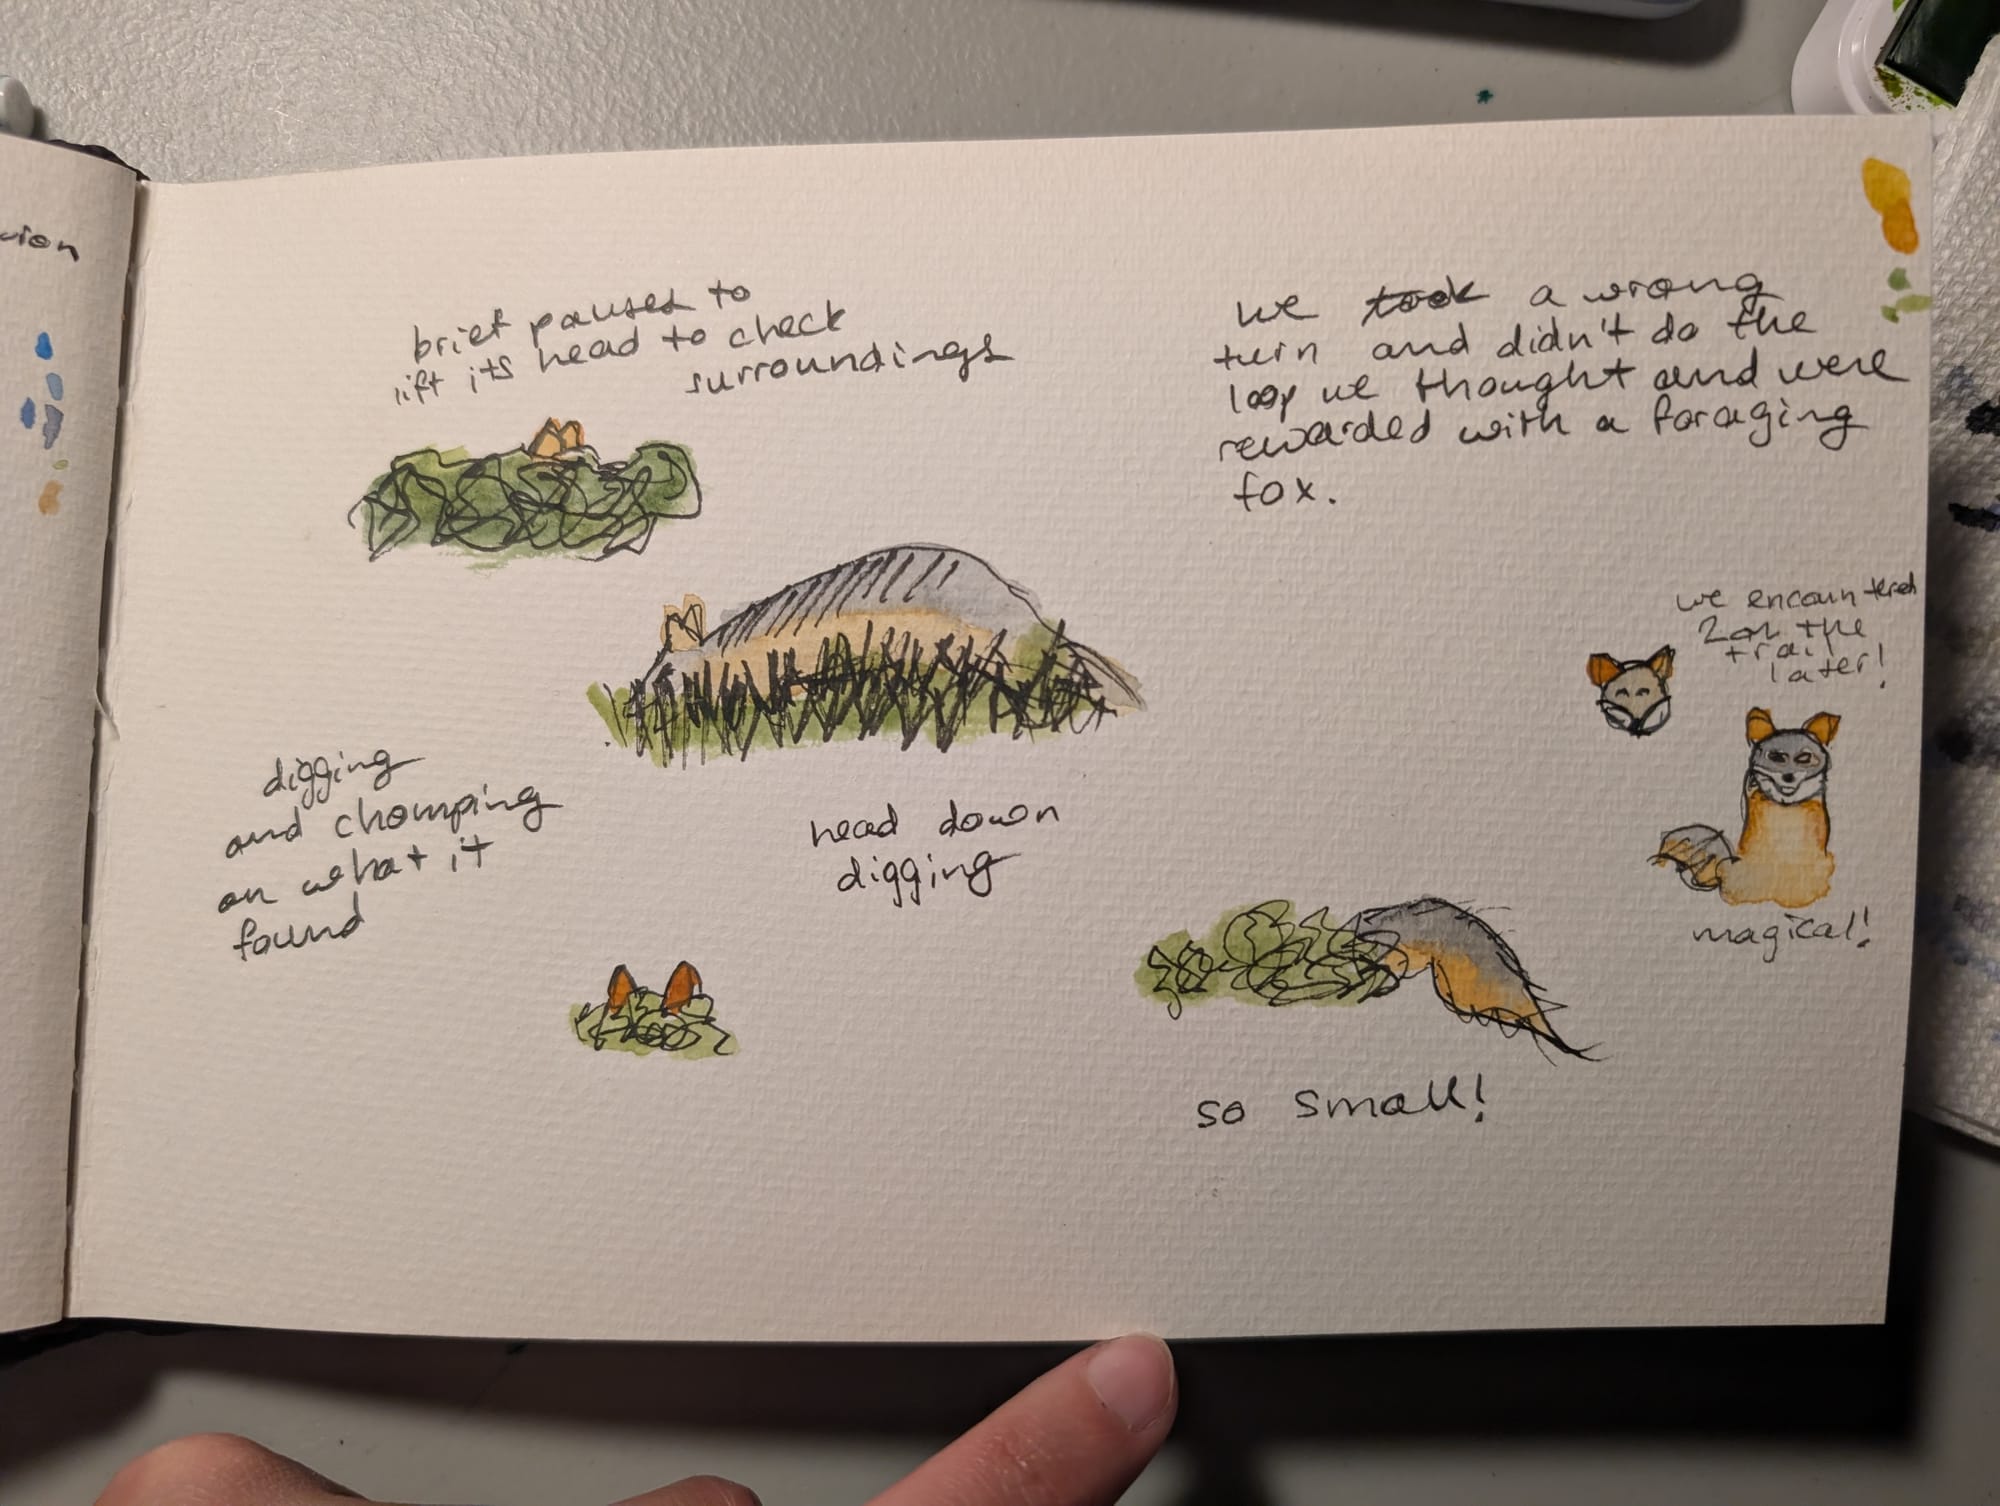 vion
brief pauses to
lift its head to check
surroundings
we took a wrong
turn and didn't do the
loop we thought and were
rewarded with a foraging
fox.
we encountered
2 on the
trail
later!
magical!
digging
and chomping
on what it
found
head down
digging
so small!